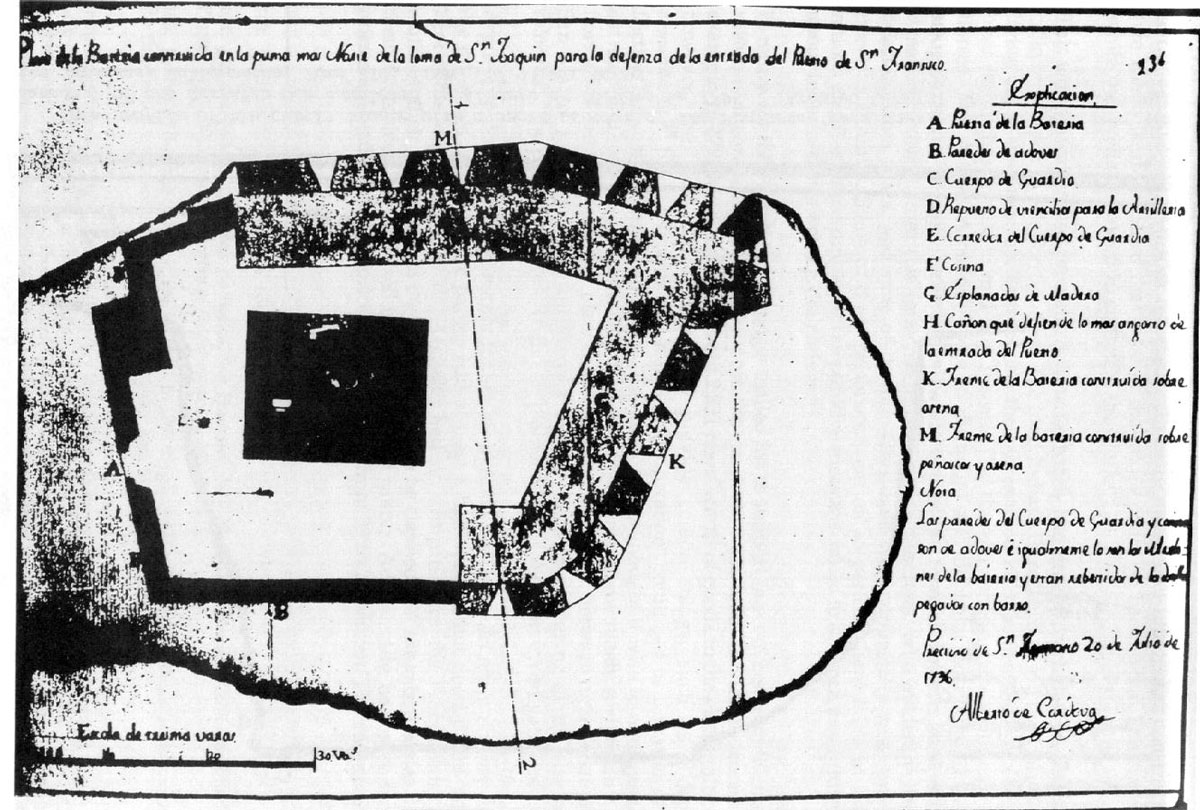 Plano de la Bateria construida en la punta mas Norte de la loma de Sn. Joaquin para la defenza de la entrada del Puerto de Sn. Fransisco.
236
Explicacion
A Puerta de la Bateria
B. Paredes de adoves
C. Cuerpo de Guardia
D. Repuesto de vtencilios para la Artilleria
E. Corredor del Cuerpo de Guardia
F Cosina
G Esplanadas de Madera
H. Cañon que defiende lo mas angosto de
la entrada del Puerto
K. Frente de la Bateria construida sobre
arena
M. Frente de la bateria construida sobre
peñascos y arena
Nota
Las paredes del Cuerpo de Guardia y
son de adoves e igualmente lo son los
nes de la bateria y estan rebestidos de
pegados con barro.
Precidio de Sn. 20 de Julio de
1796
Alberto de Cordova
M
K
G
A
B
N
Escala de treinta varas
10 20 30 Vs.